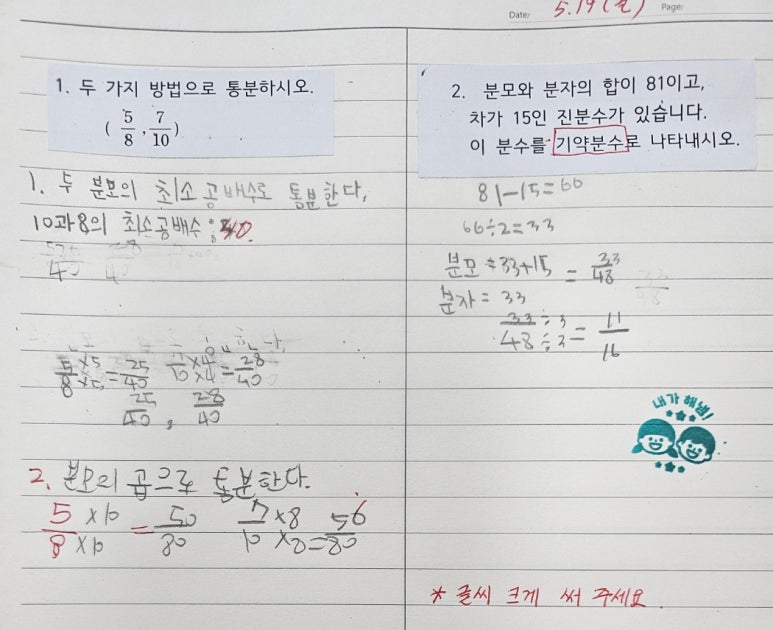 Date/ 5.19(월) Page/
1. 두 가지 방법으로 통분하시오.
( 5/8 , 7/10 )
1. 두 분모의 최소 공배수로 통분한다,
10과 8의 최소공배수 : 40.
5×5/8×5 = 25/40 7×4/10×4 = 28/40
25/40 , 28/40
2. 분모의 곱으로 통분한다.
5×10/8×10 = 50/80 7×8/10×8 = 56/80
2. 분모와 분자의 합이 81이고,
차가 15인 진분수가 있습니다.
이 분수를 기약분수로 나타내시오.
81-15=66
66÷2=33
분모 = 33+15 = 33/48
분자 = 33
33÷3/48÷3 = 11/16
내가 해냄!
* 글씨 크게 써 주세요.